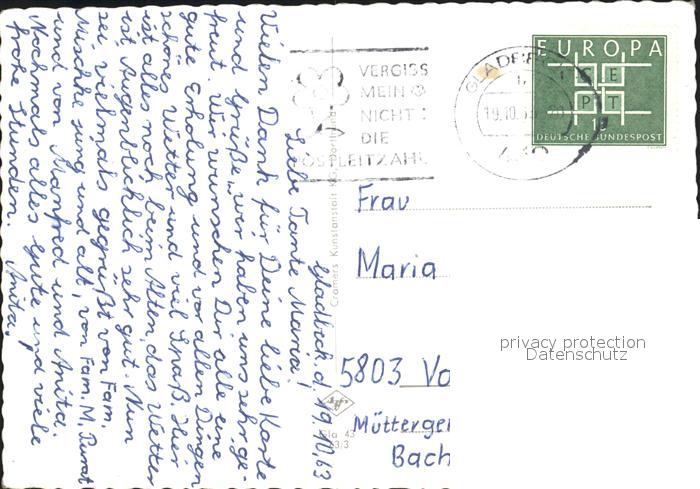 Gladbeck, d. 19.10.63
Liebe Tante Maria!
Vielen Dank für Deine liebe Karte
und Grüße, wir haben uns sehr ge-
freut. Wir wünschen Dir alle eine
gute Erholung und vor allen Dingen
schönes Wetter und viel Spaß. Hier
ist alles noch beim Alten, das Wetter
ist Augenblicklich sehr gut. Nun
sei vielmals gegrüßt von Fam.
Mischke jung und alt, von Fam. M.
und von Manfred und Anita.
Nochmals alles Gute und viele
frohe Stunden. Anita.
Cramers Kunstanstalt KG, Dortmund
VERGISS
MEIN
NICHT
DIE
POSTLEITZAHL
GLADBECK
19.10.63
EUROPA
CE
PT
15
DEUTSCHE BUNDESPOST
Frau
Maria
5803 Vo
Mütterge
Bach
Gla 43
privacy protection
Datenschutz